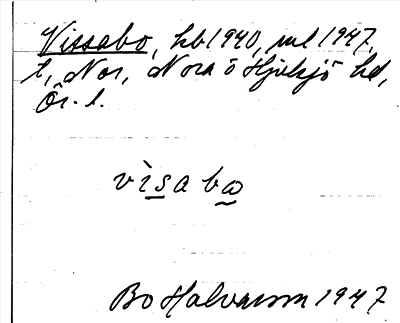 Vissabo, hb 1940, ml 1947,
t, Nor, Nora o Hjulsjö hd,
Ör. l.
vìsa bω
Bo Halvarson 1947